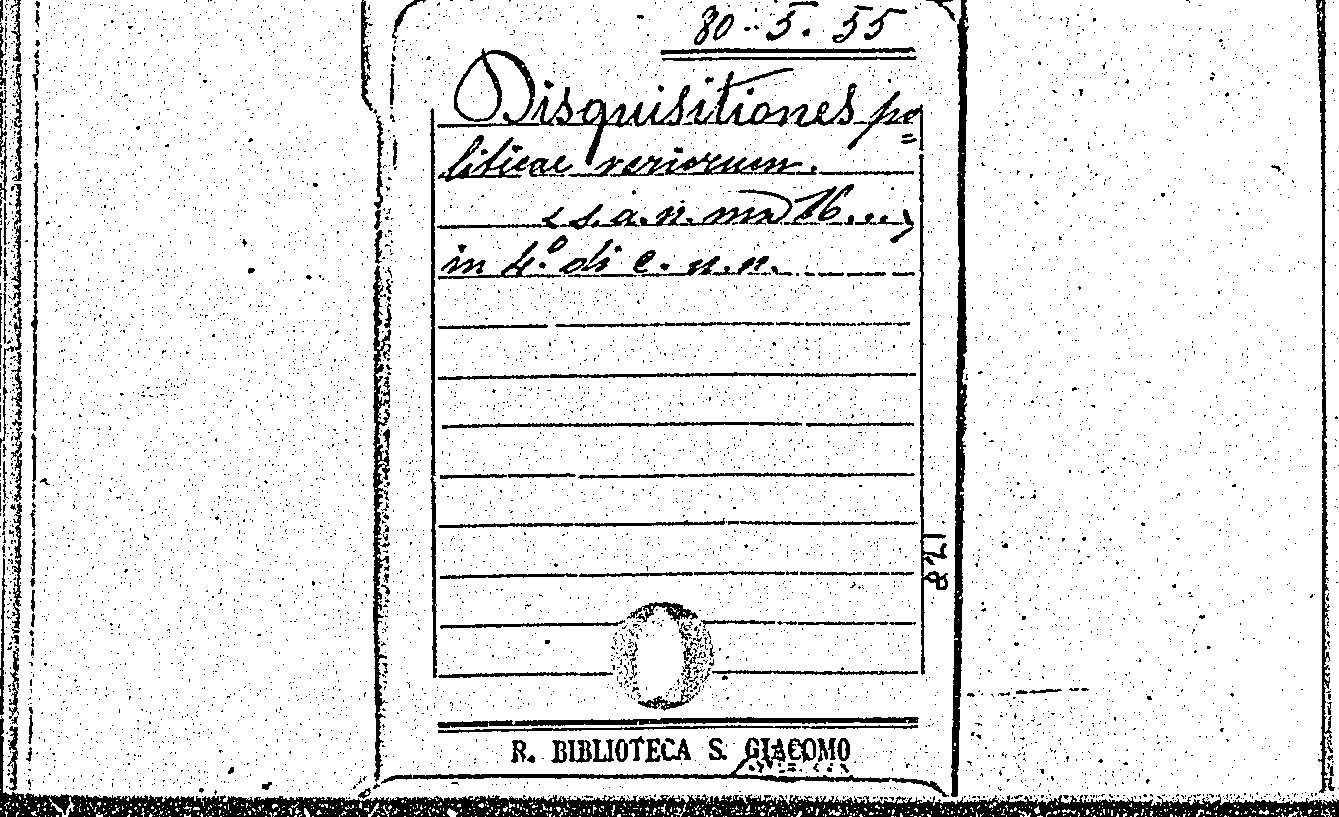 80-5.55
Disquisitiones po=
liticae variorum.
(s. a. n. ma 16...)
in 4.º di c. n. n.
178
R. BIBLIOTECA S. GIACOMO